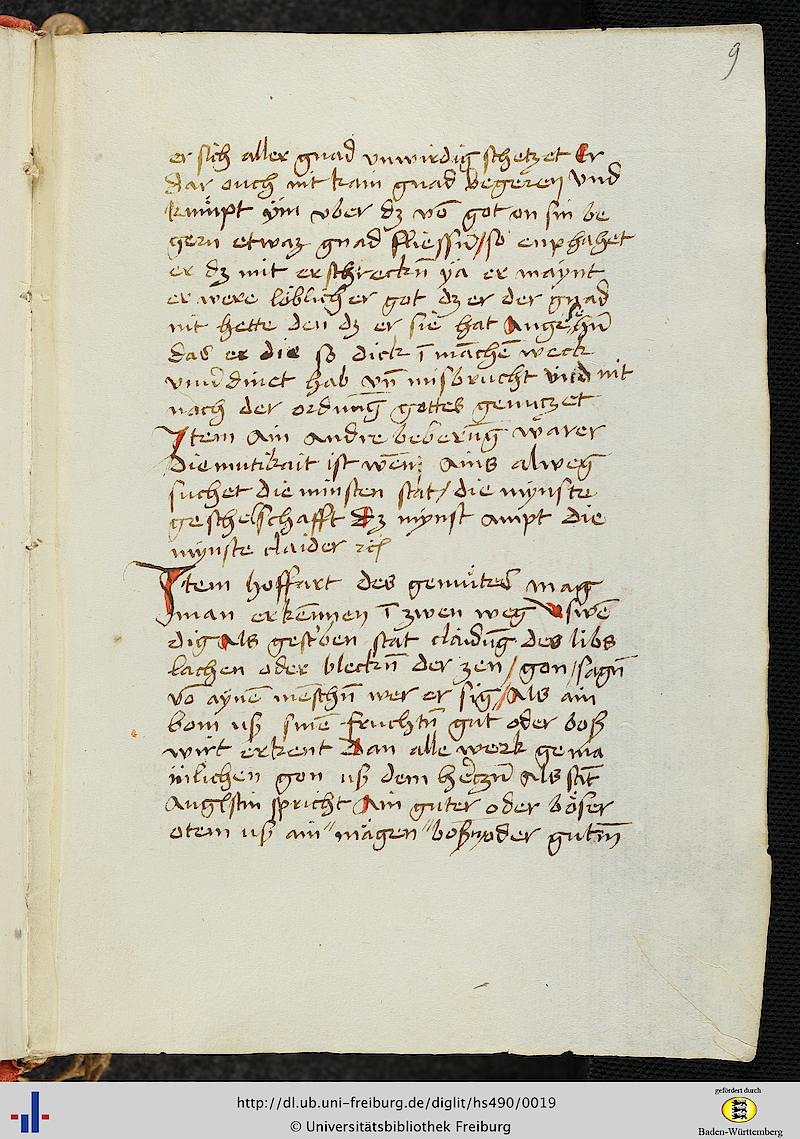 9
er sich aller gnad vnwirdig schetzet Er
dar ouch nit kain gnad begeren vnd
kumpt ÿm vber dz vō got on sin be
gern etwaz gnad fliessn̄/so enphahet
er dz mit erschreckn̄ ya er maynt
er were löblicher got dz er der gnad
nit hette den dz er sie hat Angesehn̄
das er die so dick ī māchē weck
hab vn̄ misbrucht vnd nit
nach der ordnūg gottes genutzet
Item Ain andre beberūg warer
diemutikait ist wen̄ Ains alweg
suchet die minsten stat/die mynste
geschelschafft dz mynst ampt die
mynste claider
Item hoffart des gemütes mag
man erkennen ī zwen weg vswē
dig Als stat claidūg des libs
lachen oder bleckn̄ der zen/gon/sagn̄
vō aynē menschn̄ wer er sig/Als ain
bom uß sinē fruchtn̄ gut oder boß
wirt erkent Dan alle werk gema
inlichen gon uß dem hertzn̄ Als sāt
Auglstin spricht Ain guter oder böser
otem uß ain mägen boßn̄ oder gutm̄
http://dl.ub.uni-freiburg.de/diglit/hs490/0019
© Universitätsbibliothek Freiburg
gefördert durch
Baden-Württemberg